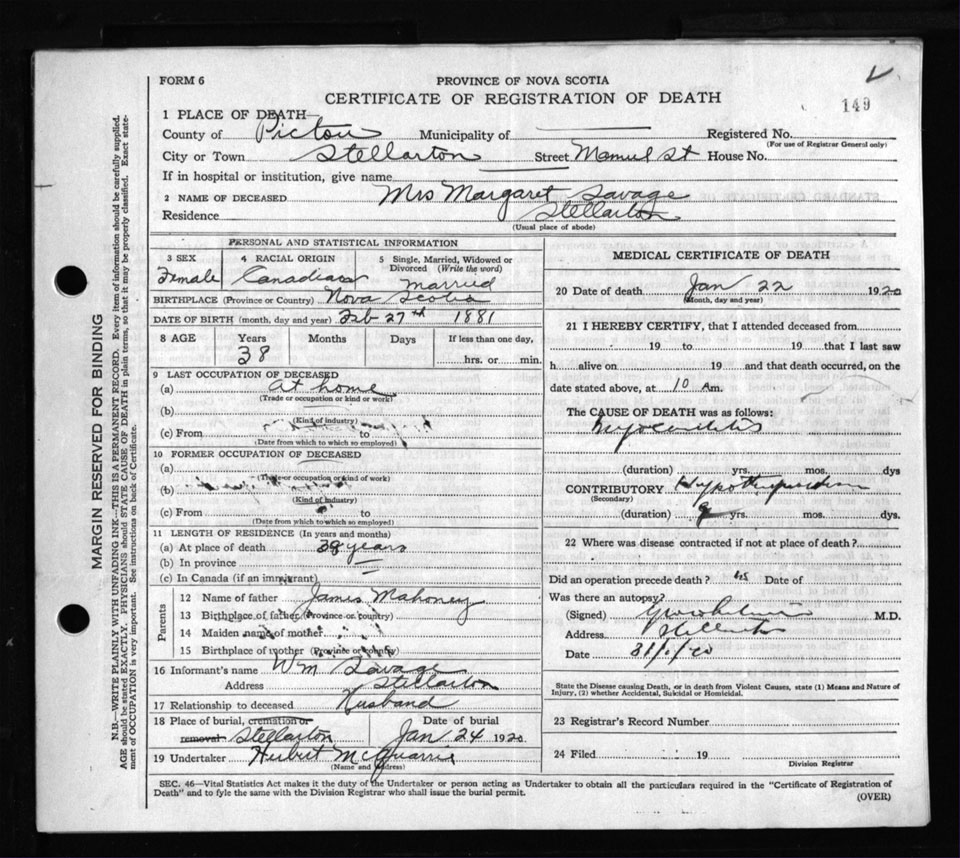 FORM 6
PROVINCE OF NOVA SCOTIA
CERTIFICATE OF REGISTRATION OF DEATH
149
1 PLACE OF DEATH—
County of Pictou Municipality of Registered No.
(For use of Registrar General only)
City or Town Stellarton Street St House No.
If in hospital or institution, give name
2 NAME OF DECEASED Mrs Margaret Savage
Residence Stellarton
(Usual place of abode)
PERSONAL AND STATISTICAL INFORMATION
3 SEX 4 RACIAL ORIGIN 5 Single, Married, Widowed or Divorced (Write the word)
Female Canadian Married
BIRTHPLACE (Province or Country) Nova Scotia
DATE OF BIRTH (month, day and year) Feb 27th 1881
8 AGE Years Months Days If less than one day,
38 hrs. or min.
9 LAST OCCUPATION OF DECEASED
(a) At home
(Trade or occupation or kind or work)
(b)
(Kind of industry)
(c) From to
(Date from which to which so employed)
10 FORMER OCCUPATION OF DECEASED
(a)
(Trade or occupation or kind of work)
(b)
(Kind of industry)
(c) From to
(Date from which to which so employed)
11 LENGTH OF RESIDENCE (In years and months)
(a) At place of death 38 years
(b) In province
(c) In Canada (if an immigrant)
Parents
12 Name of father James Mahoney
13 Birthplace of father (Province or country)
14 Maiden name of mother
15 Birthplace of mother (Province or country)
16 Informant's name Wm Savage
Address Stellarton
17 Relationship to deceased Husband
18 Place of burial, cremation or removal Stellarton Date of burial Jan 24 1920
19 Undertaker Herbert McQuarrie
(Name and address)
MEDICAL CERTIFICATE OF DEATH
20 Date of death Jan 22 1920
(Month, day and year)
21 I HEREBY CERTIFY, that I attended deceased from
19 to 19 that I last saw
h alive on 19 and that death occurred, on the
date stated above, at 10 Am.
The CAUSE OF DEATH was as follows:
(duration) yrs. mos. dys
CONTRIBUTORY
(Secondary)
(duration) yrs. mos. dys.
22 Where was disease contracted if not at place of death?
Did an operation precede death? Date of
Was there an autopsy?
(Signed) M.D.
Address Stellarton
Date 31/1/20
State the Disease causing Death, or in death from Violent Causes, state (1) Means and Nature of
Injury, (2) whether Accidental, Suicidal or Homicidal.
23 Registrar's Record Number
24 Filed 19
Division Registrar
SEC. 46—Vital Statistics Act makes it the duty of the Undertaker or person acting as Undertaker to obtain all the particulars required in the "Certificate of Registration of
Death" and to fyle the same with the Division Registrar who shall issue the burial permit.
(OVER)
MARGIN RESERVED FOR BINDING
N.B.—WRITE PLAINLY WITH UNFADING INK—THIS IS A PERMANENT RECORD. Every item of information should be carefully supplied.
AGE should be stated EXACTLY. PHYSICIANS should STATE CAUSE OF DEATH in plain terms, so that it may be properly classified. Exact state-
ment of OCCUPATION is very important. See instructions on back of Certificate.